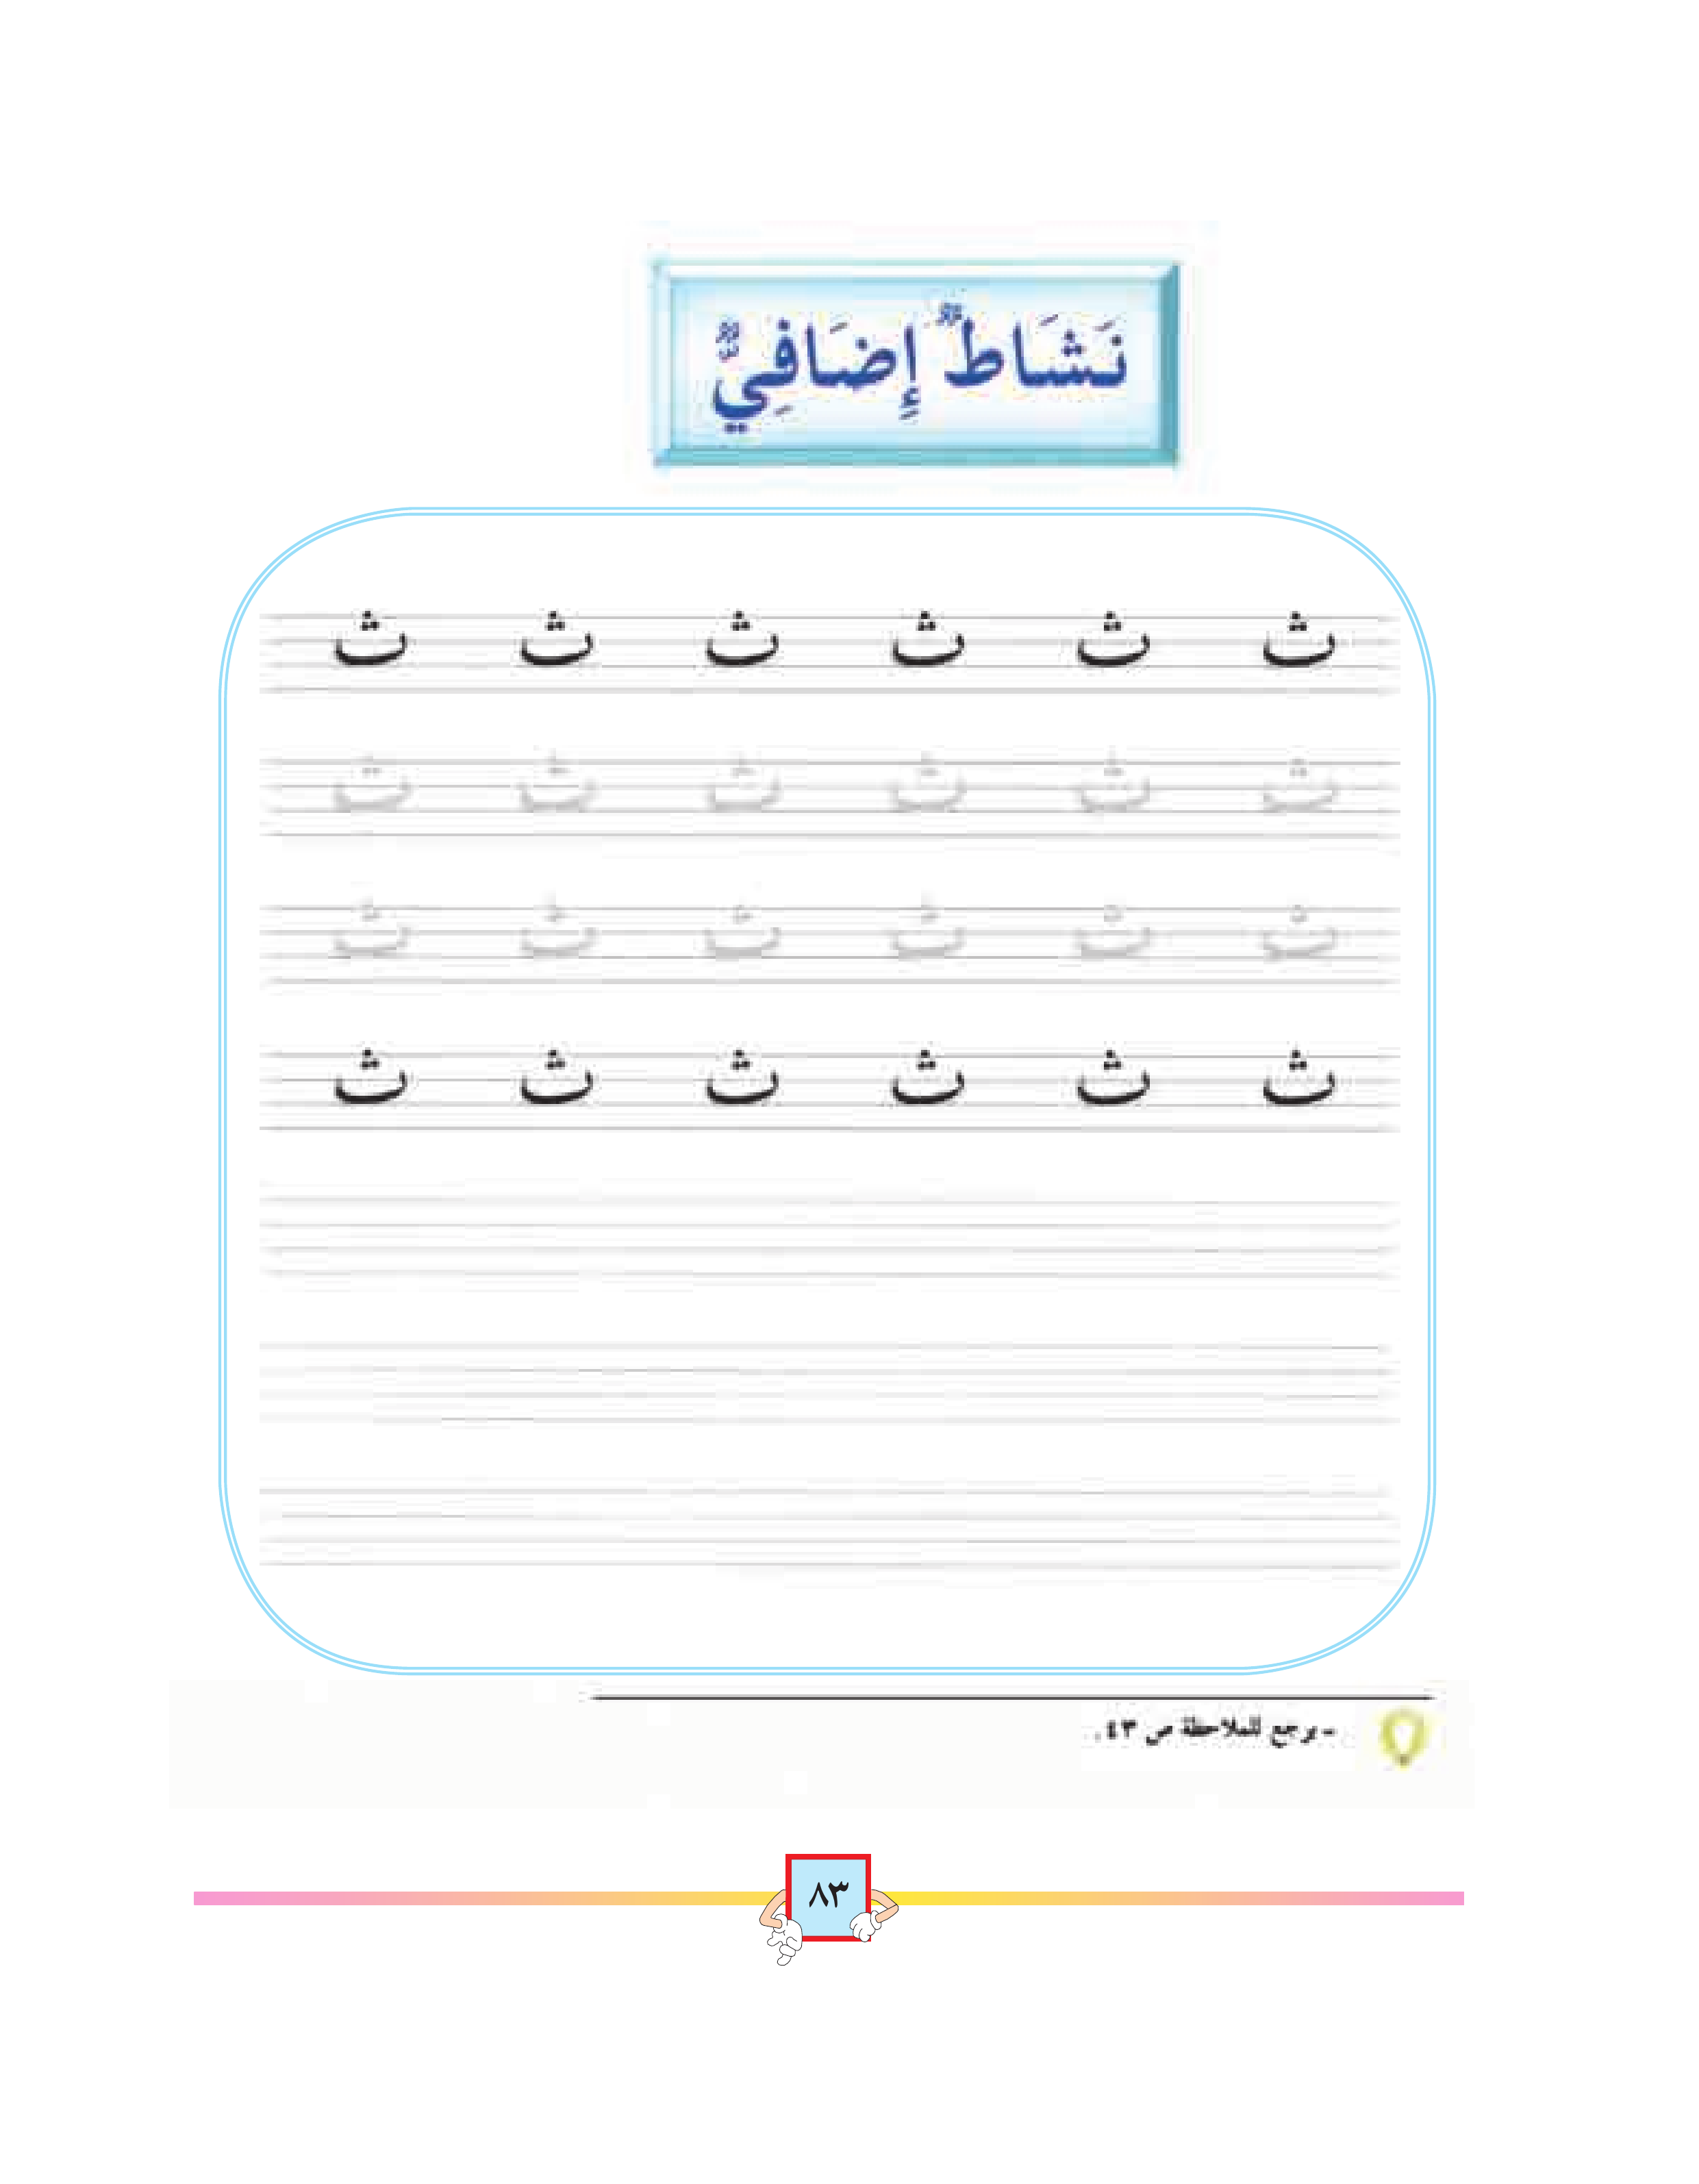 نَشَاطٌ إِضَافِيٌّ
ث ث ث ث ث ث
ث ث ث ث ث ث
ث ث ث ث ث ث
ث ث ث ث ث ث
- يرجع للملاحظة ص ٤٣ .
٨٣